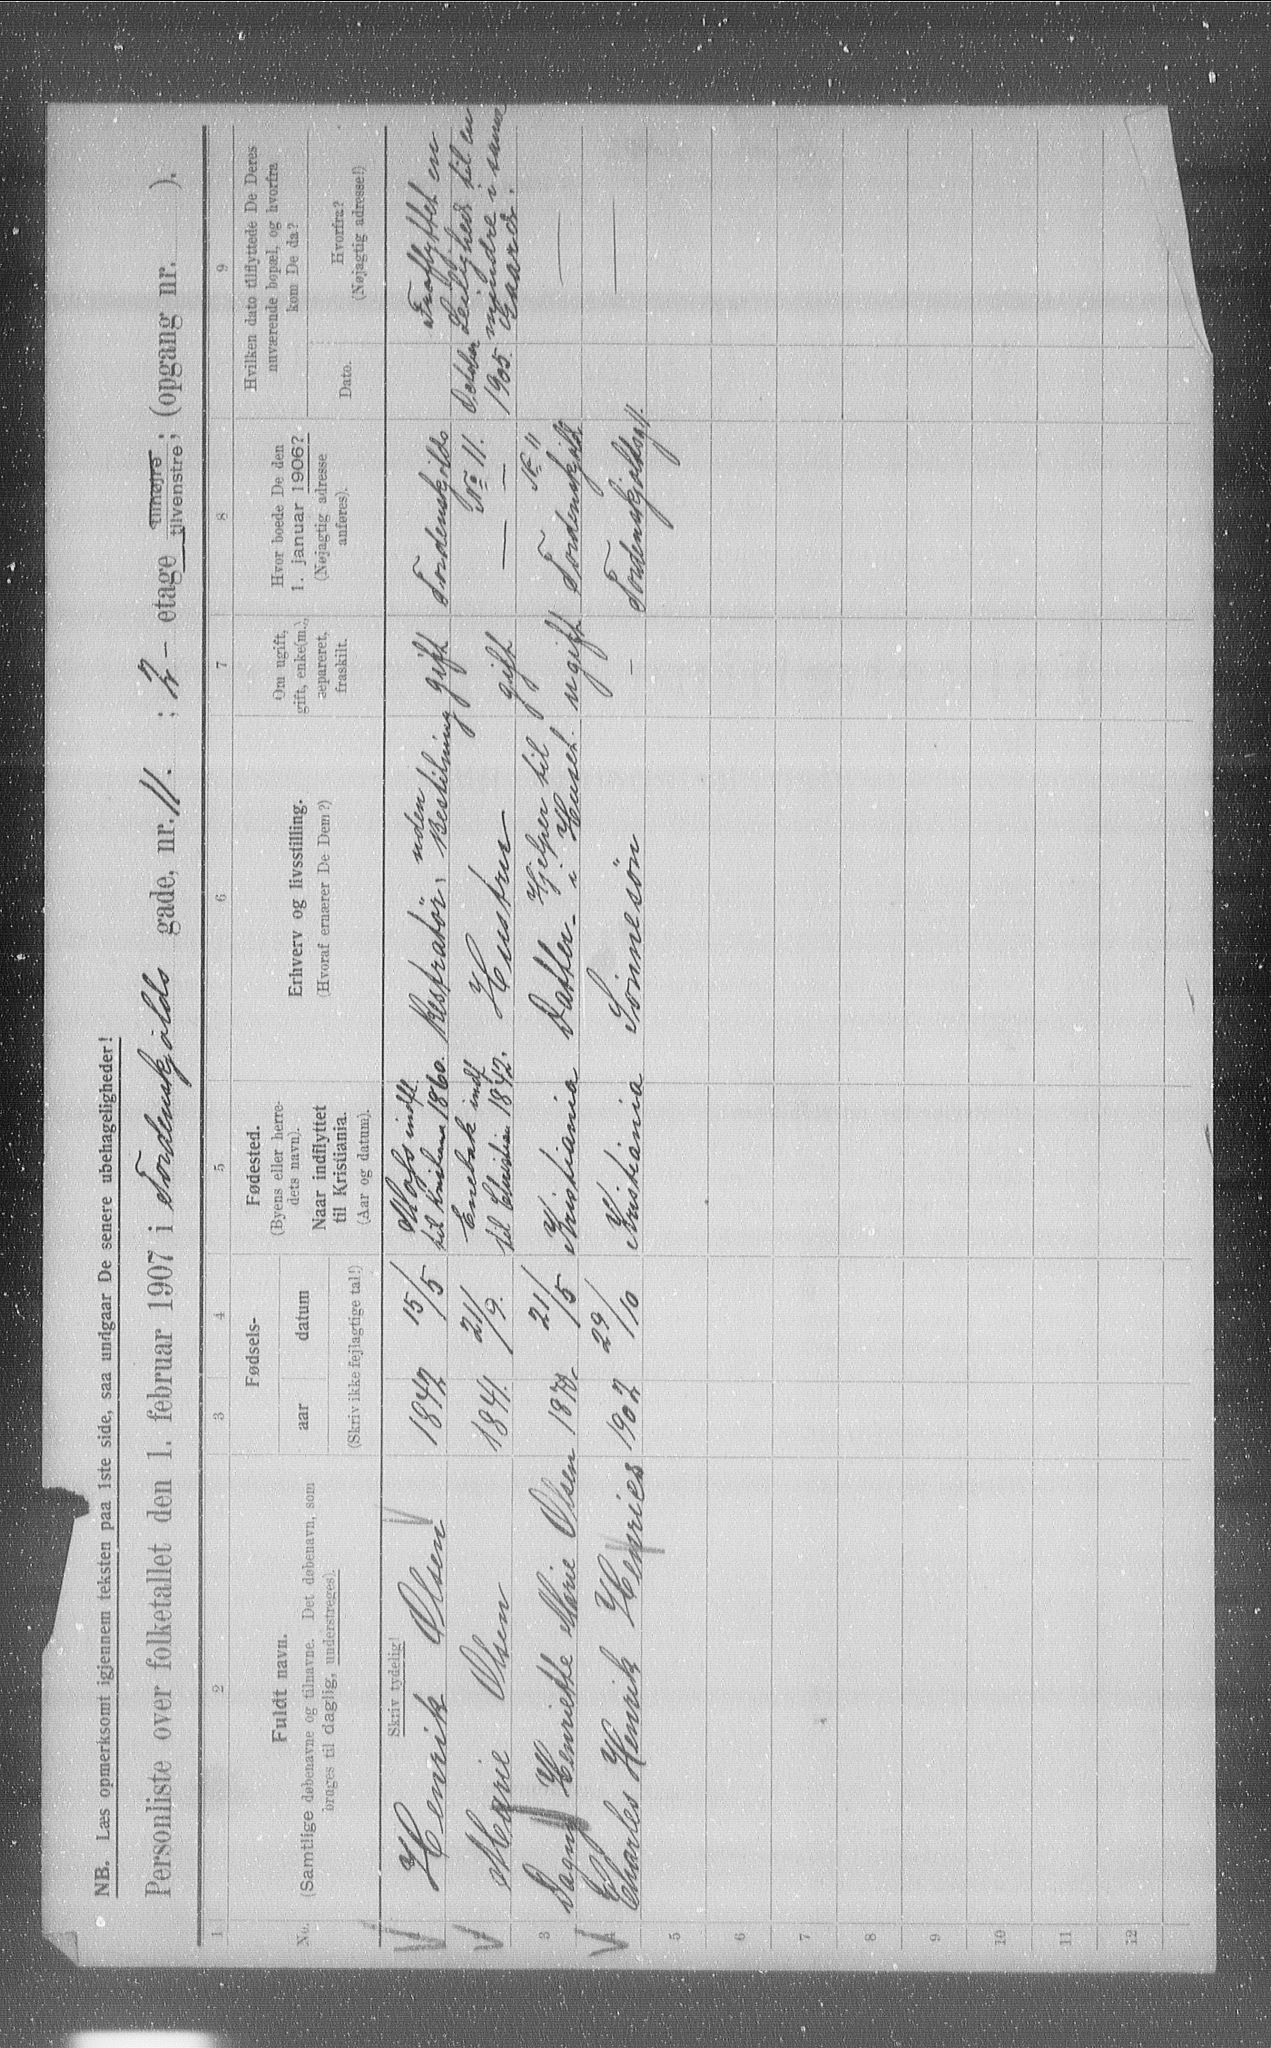 NB. Læs opmerksomt igjennem teksten paa 1ste side, saa undgaar De senere ubehageligheder!
Personliste over folketallet den 1. februar 1907 i Tordenskjolds gade, nr. 11. ; 2 - etage tilhøjre tilvenstre; (opgang nr. ).
1 2 3 4 5 6 7 8 9
No.
Fuldt navn.
(Samtlige døbenavne og tilnavne. Det døbenavn, som
bruges til daglig, understreges).
Skriv tydelig!
Fødsels-
aar datum
(Skriv ikke fejlagtige tal!)
Fødested.
(Byens eller herre-
dets navn).
Naar indflyttet
til Kristiania.
(Aar og datum).
Erhverv og livsstilling.
(Hvoraf ernærer De Dem?)
Om ugift,
gift, enke(m.),
separeret,
fraskilt.
Hvor boede De den
1. januar 1906?
(Nøjagtig adresse
anføres).
Hvilken dato tilflyttede De Deres
nuværende bopæl, og hvorfra
kom De da?
Dato.
Hvorfra?
(Nøjagtig adresse!)
Henrik Olsen 1842 15/5 Moss indfl. til 1860. uden Bestilning gift Tordenskjolds No 11.
2 Marie Olsen 1841. 21/9. Enebak indf til 1842. Hustru gift — —
October 1905. Fraflyttet en Leilighed til en mindre i samme Gaard.
3 Dagny Henriette Marie Olsen 21/5 Kristiania Datter - Hjelper til i Huset. ugift Tordenskjolds No 11 —
4 Charles Henrik Henries 1902 29/10 Kristiania Sönnesön - Tordenskjoldsg 11. —
5
6
7
8
9
10
11
12